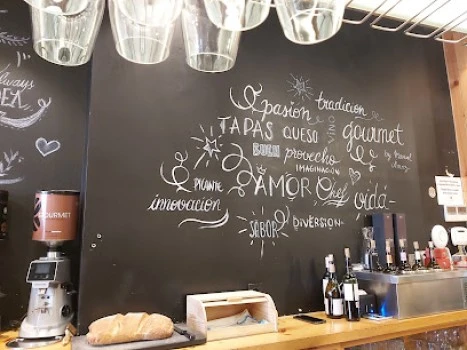 always
pasión tradicion
TAPAS QUESO VINO gourmet
BUEN provecho
IMAGINACIÓN
PICANTE AMOR Chef vida
innovacion
SABOR DIVERSION
GOURMET